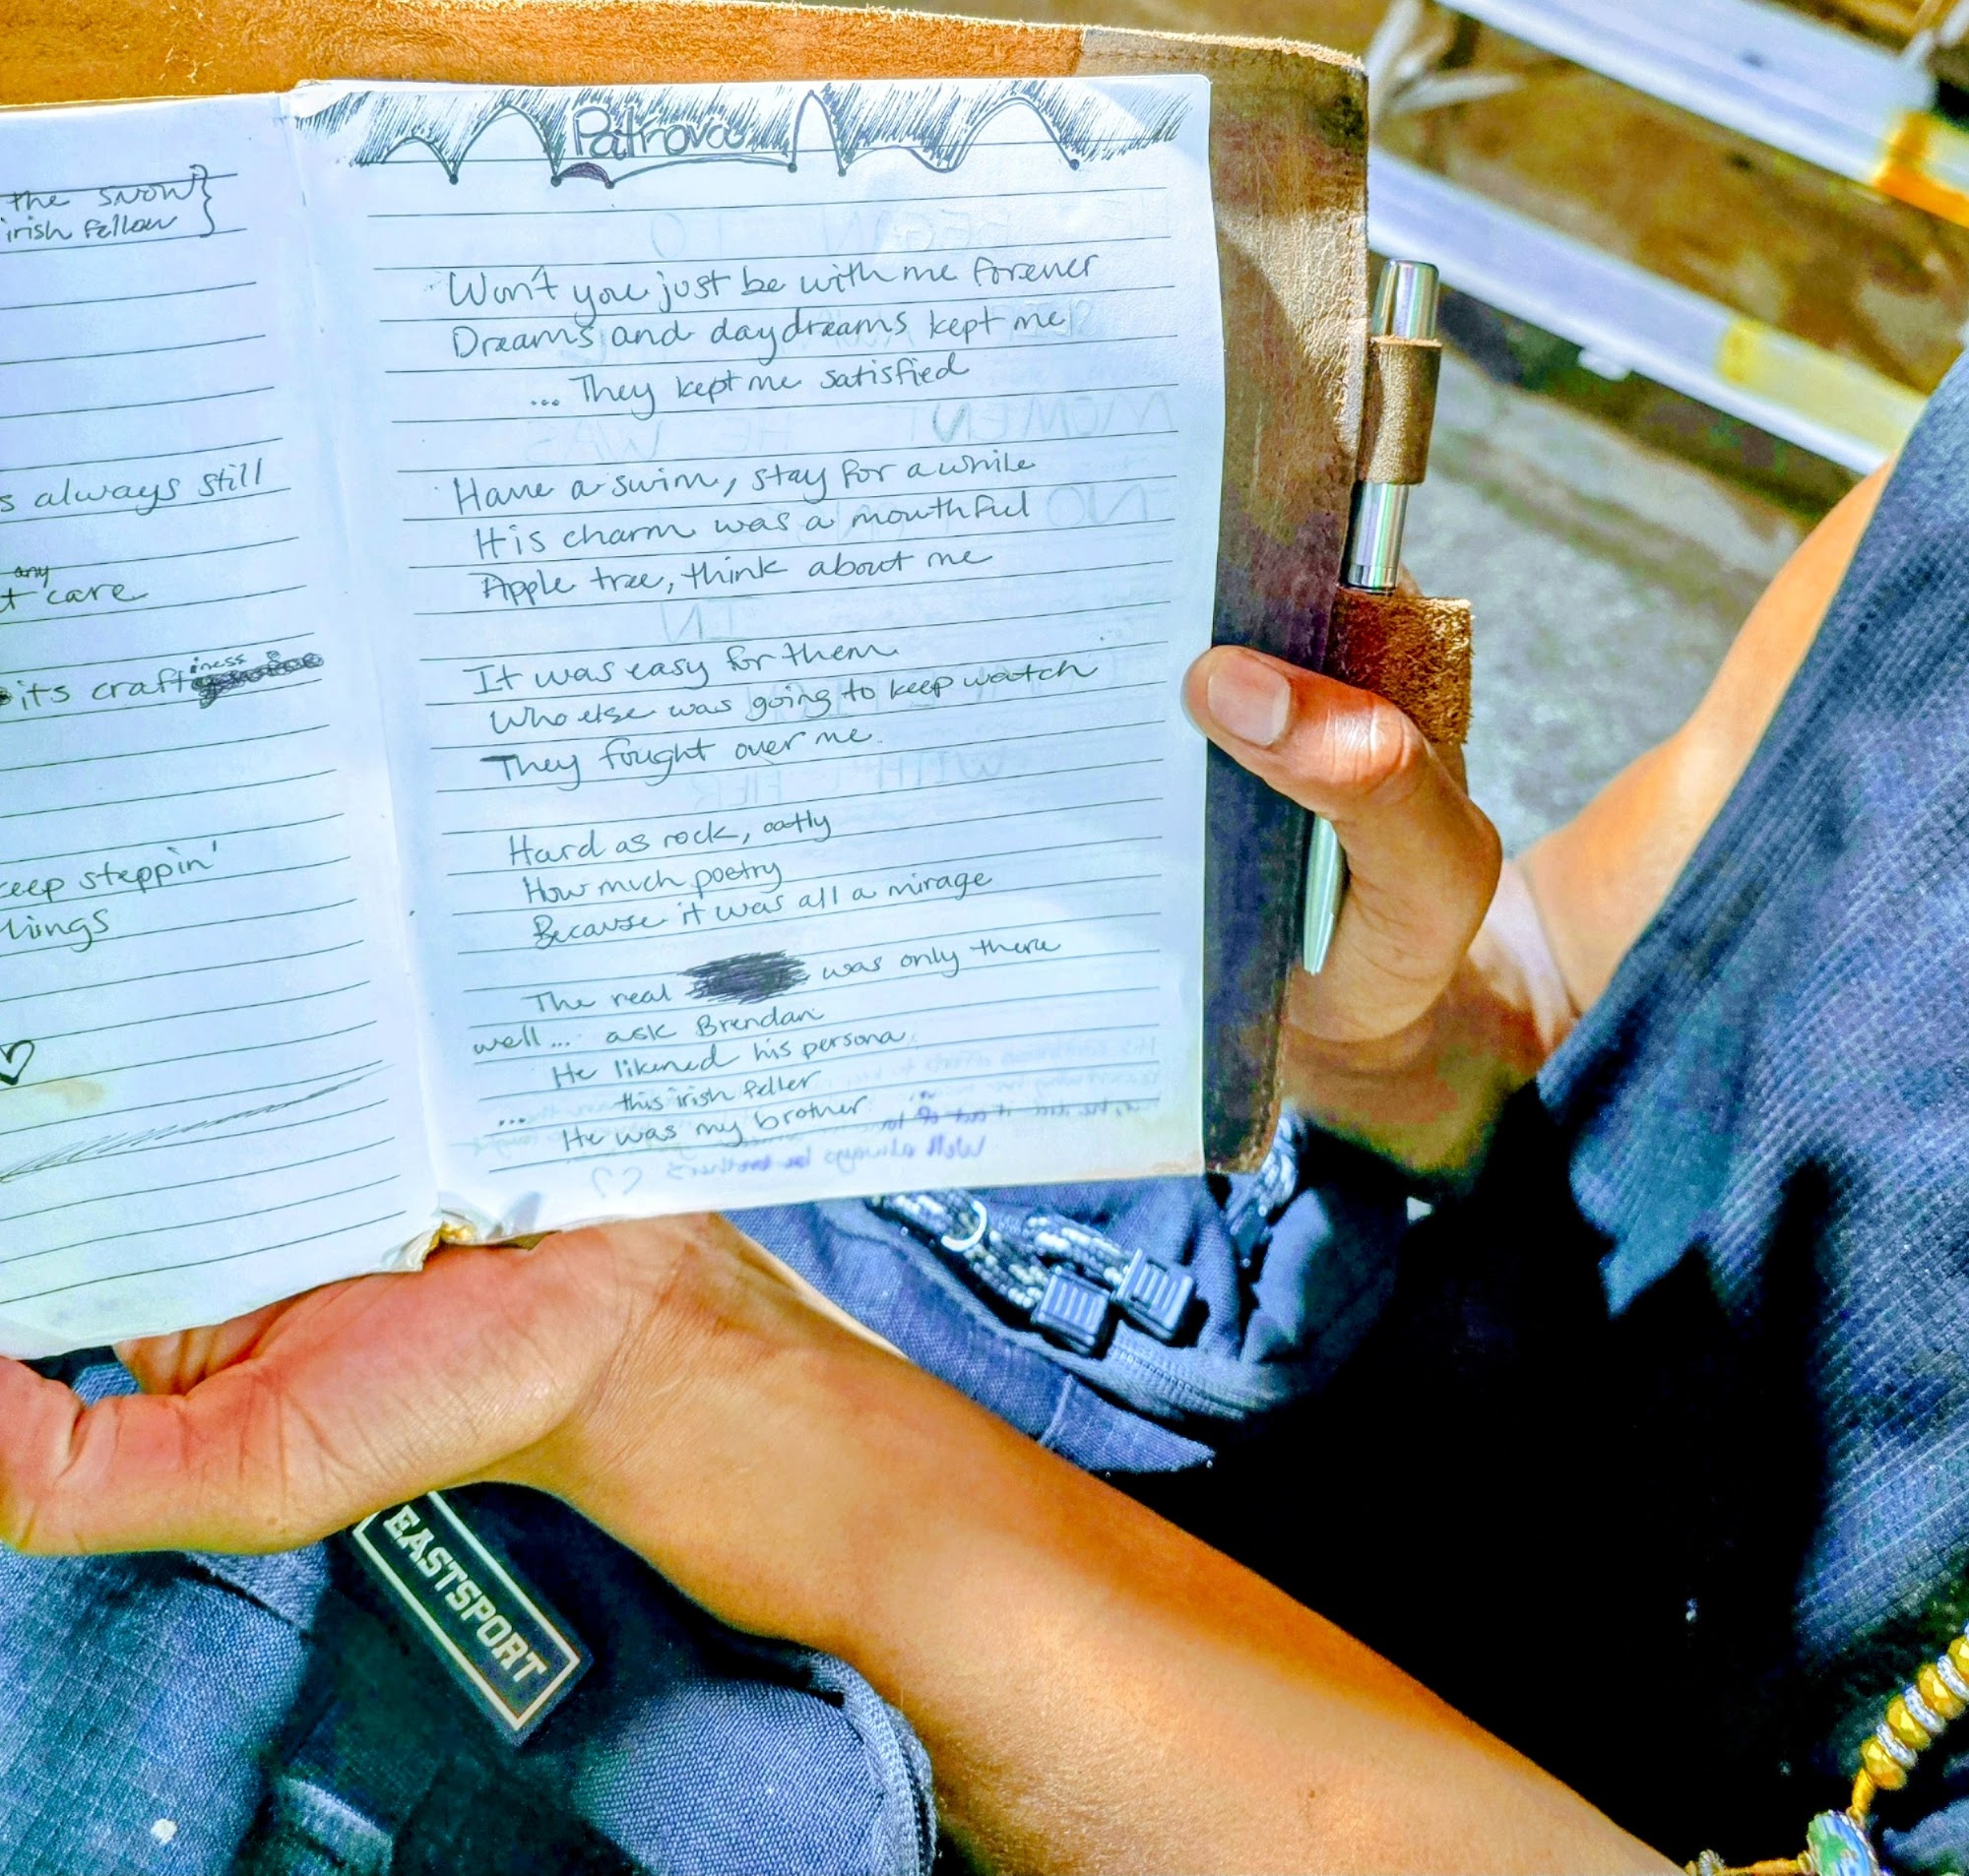 the snow
irish fellow
s always still
any
t care
its craftiness
keep steppin'
things
Patrova
Won't you just be with me forever
Dreams and daydreams kept me
... They kept me satisfied
Have a swim, stay for a while
His charm was a mouthful
Apple tree, think about me
It was easy for them.
Who else was going to keep watch
They fought over me.
Hard as rock, oatly
How much poetry
Because it was all a mirage
The real was only there
well... ask Brendan
He likened his persona.
... this irish feller
He was my brother
We'll always be brothers
EASTSPORT